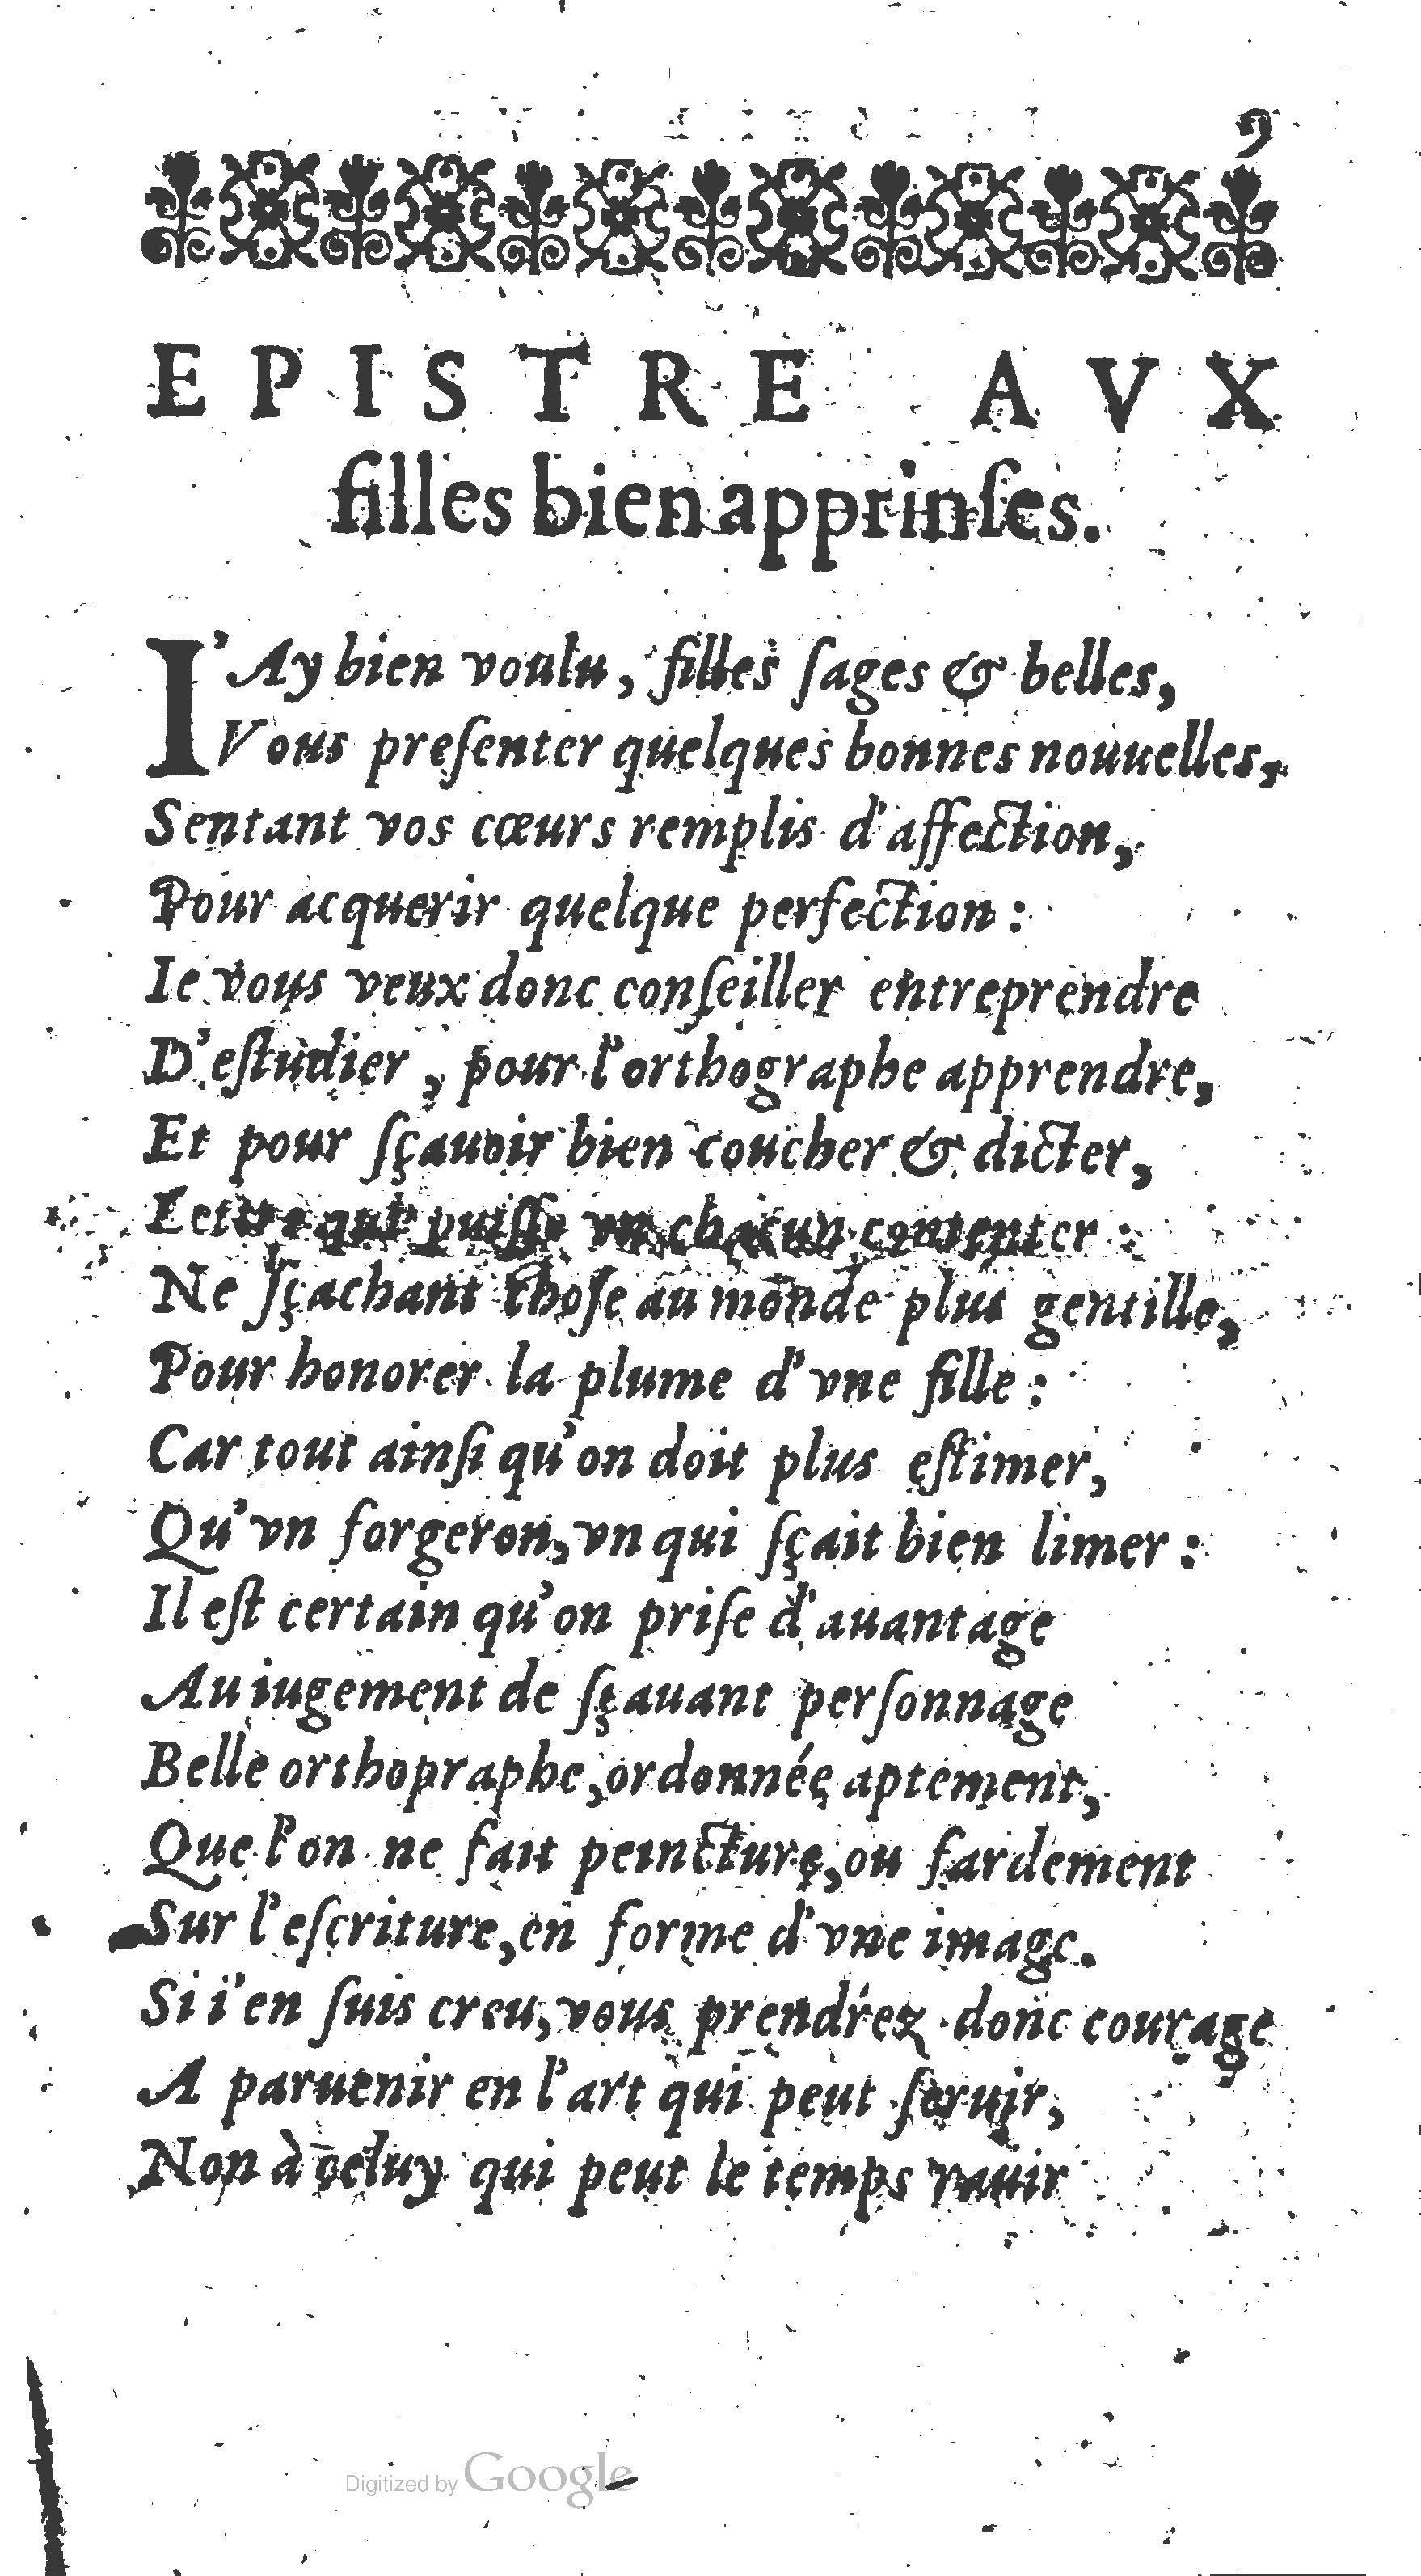 9
EPISTRE AVX
filles bien apprinſes.
I'Ay bien voulu, filles ſages & belles,
Vous preſenter quelques bonnes nouuelles,
Sentant vos cœurs remplis d'affection,
Pour acquerir quelque perfection:
Ie vous veux donc conſeiller entreprendre
D'eſtudier, pour l'orthographe apprendre,
Et pour ſçauoir bien coucher & dicter,
Lettre qui puiſſe vn chacun contenter:
Ne ſçachant choſe au monde plus gentille,
Pour honorer la plume d'vne fille:
Car tout ainſi qu'on doit plus eſtimer,
Qu'vn forgeron, vn qui ſçait bien limer:
Il eſt certain qu'on priſe d'auantage
Au iugement de ſçauant perſonnage
Belle orthopraphe, ordonnée aptement,
Que l'on ne fait peincture, ou fardement
Sur l'eſcriture, en forme d'vne image.
Si i'en ſuis creu, vous prendrez donc courage
A paruenir en l'art qui peut ſeruir,
Non à celuy qui peut le temps rauir
Digitized by Google